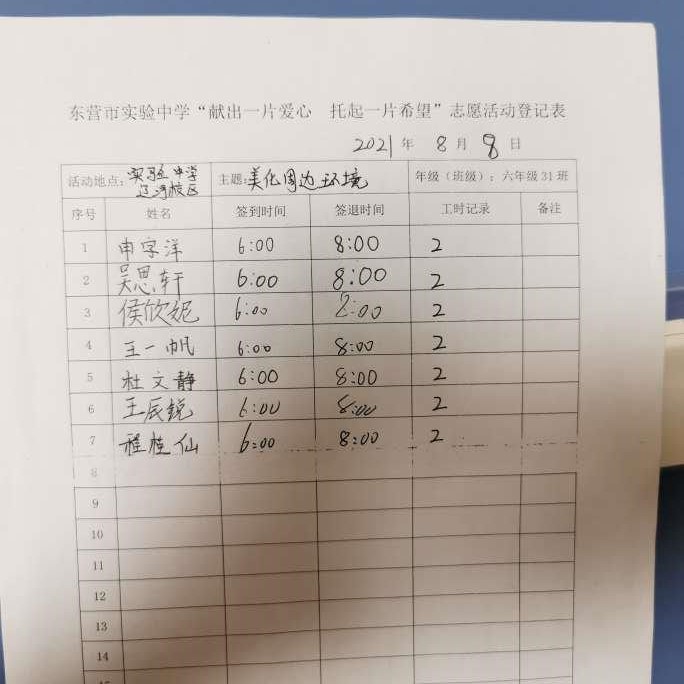 东营市实验中学“献出一片爱心 托起一片希望”志愿活动登记表
2021 年 8 月 8 日
活动地点: 实验中学 辽河校区 主题: 美化周边环境 年级（班级）: 六年级31班
序号 姓名 签到时间 签退时间 工时记录 备注
1 申字洋 6:00 8:00 2
2 吴思轩 6:00 8:00 2
3 侯欣妮 6:00 8:00 2
4 王一帆 6:00 8:00 2
5 杜文静 6:00 8:00 2
6 王辰锐 6:00 8:00 2
7 程桂仙 6:00 8:00 2
8
9
10
11
12
13
14